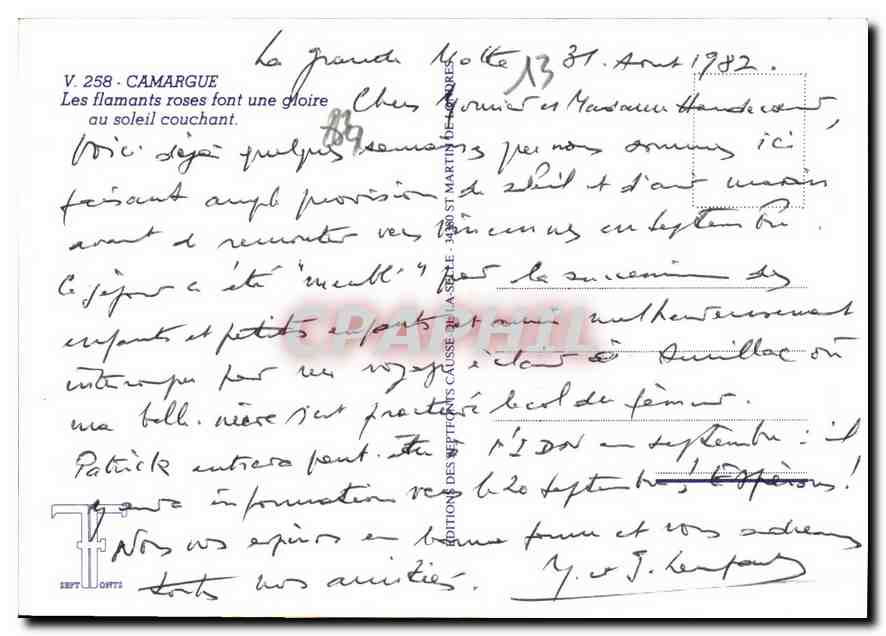 La Grande Motte 31. Aout 1982.
13
V. 258 - CAMARGUE
Les flamants roses font une gloire
au soleil couchant.
Chers Monsieur et Madame
Voici déjà quelques semaines que nous sommes ici
faisant ample provision de soleil et d'air marin
avant de remonter vers Vincennes en septembre.
Ce séjour a été "meublé" par la succession des
enfants et petits enfants et aussi malheureusement
interrompu par un voyage éclair à Aurillac où
ma belle-mère s'est fracturé le col du fémur.
Patrick entrera peut-être à en septembre : il
y aura information vers le 20 septembre! Espérons!
Nous vous espérons en bonne forme et vous adressons
toutes nos amitiés.
EDITIONS DES SEPTFONTS CAUSSE DE LA SELLE - 34380 ST MARTIN DE LONDRES
SEPT FONTS
CPAPHIL